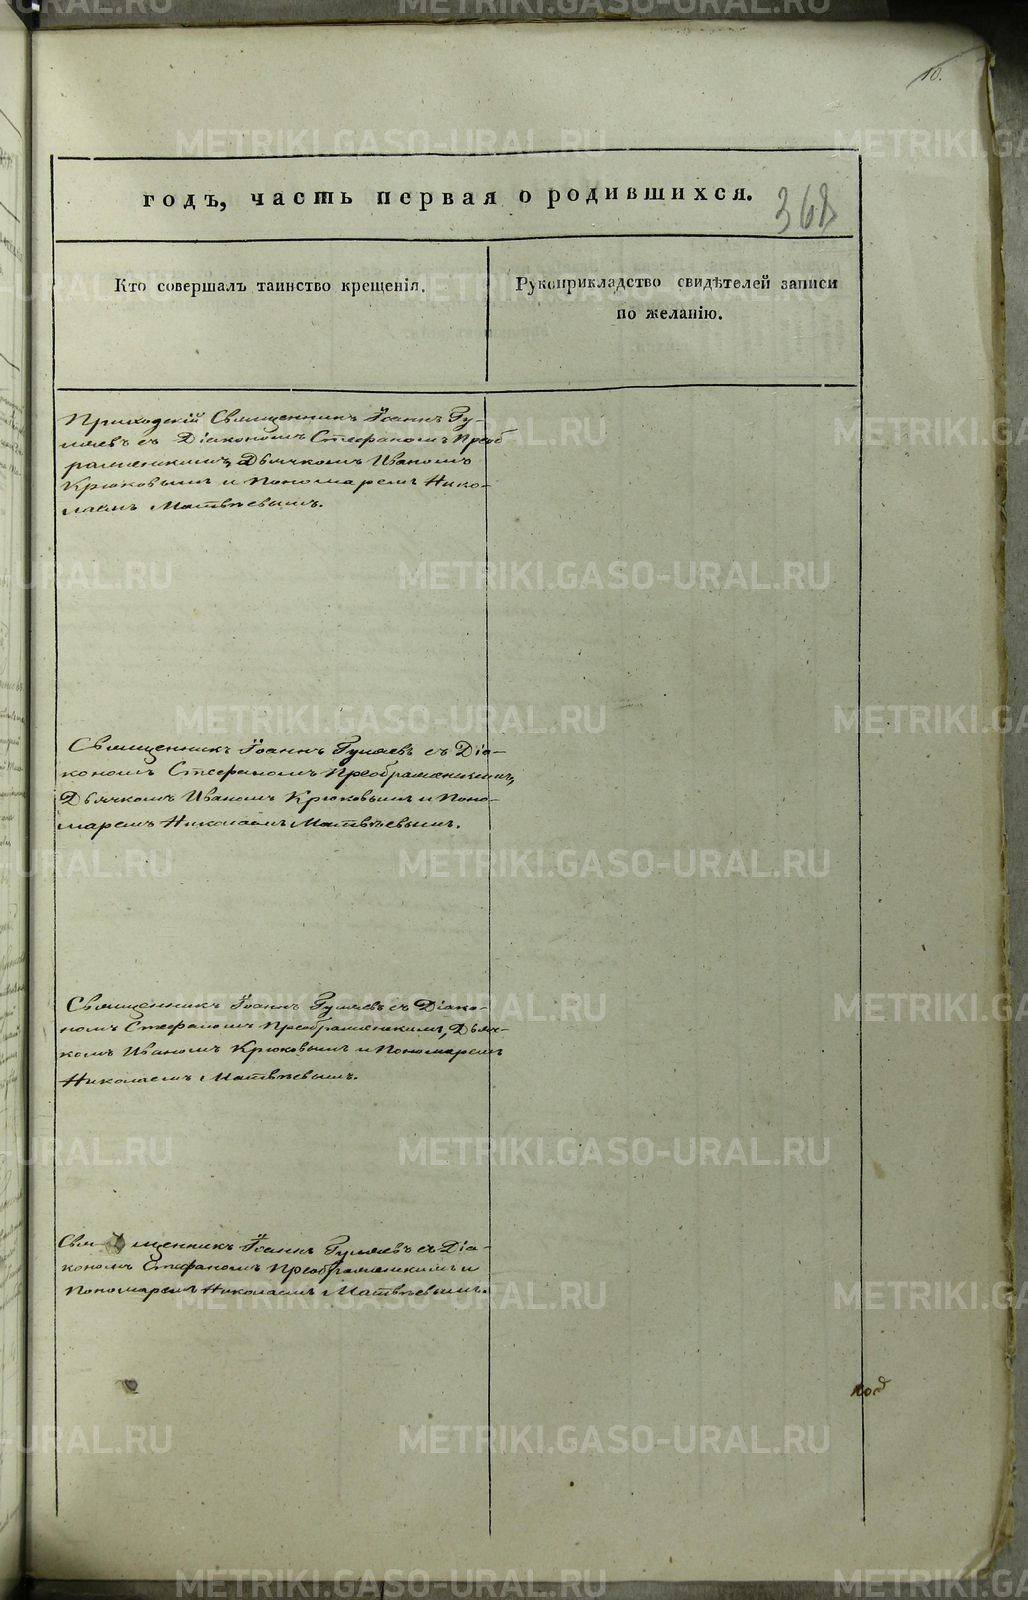 10.
годъ, часть первая о родившихся.
368
Кто совершалъ таинство крещенія.
Рукоприкладство свидѣтелей записи
по желанію.
Приходскій Священникъ Іоаннъ Гу-
ляевъ съ Діакономъ Стефаномъ Преоб
раженскимъ, Дьячкомъ Иваномъ
Крюковымъ и Пономаремъ Нико-
лаемъ Матвѣевымъ.
Священникъ Іоаннъ Гуляевъ съ Діа-
кономъ Стефаномъ Преображенскимъ,
Дьячкомъ Иваномъ Крюковымъ и Поно-
маремъ Николаемъ Матвѣевымъ.
Священникъ Іоаннъ Гуляевъ съ Діако-
номъ Стефаномъ Преображенскимъ, Дьяч-
комъ Иваномъ Крюковымъ и Пономаремъ
Николаемъ Матвѣевымъ.
Свя щенникъ Іоаннъ Гуляевъ съ Діа-
кономъ Стефаномъ Преображенскимъ и
Пономаремъ Николаемъ Матвѣевымъ.
METRIKI.GASO-URAL.RU